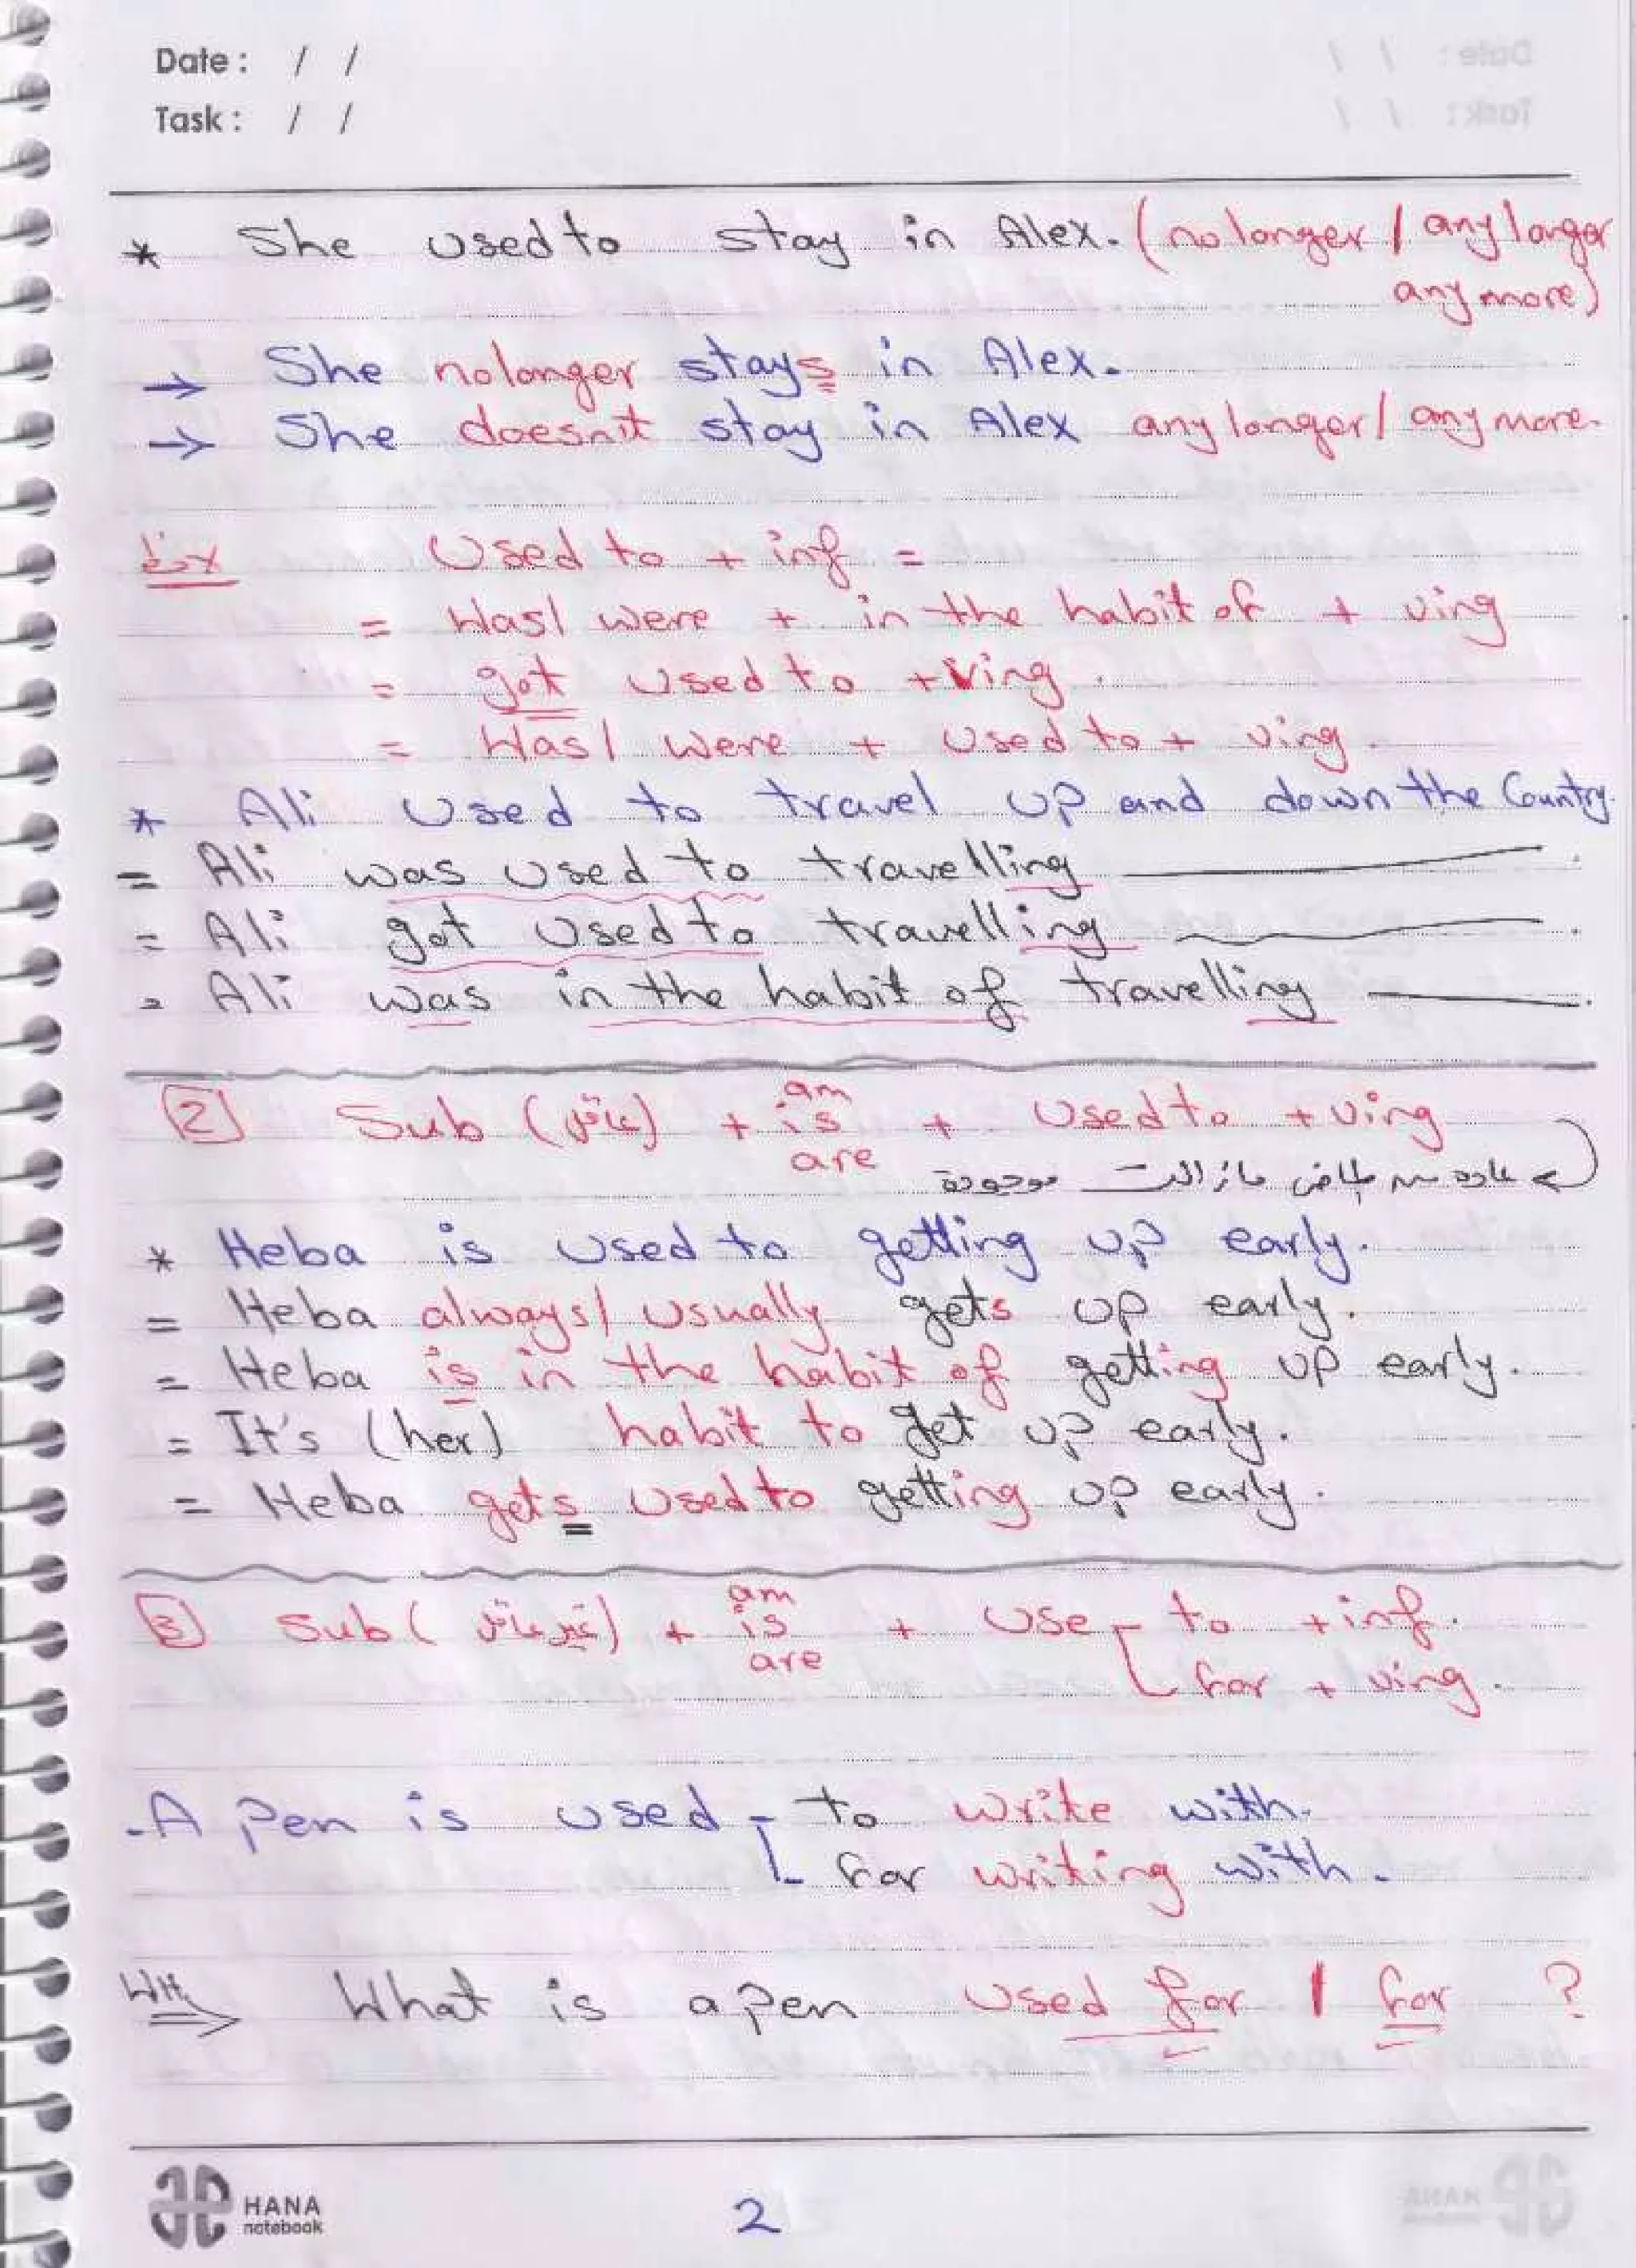 Date : / /
Task : / /
* She used to stay in Alex. (no longer / any longer
any more)
→ She no longer stays in Alex.
→ She doesn't stay in Alex any longer / any more.
Ex used to + inf =
= Was / were + in the habit of + ving
= got used to + ving.
= Was / were + used to + ving.
* Ali used to travel up and down the Country.
= Ali was used to travelling ———.
= Ali got used to travelling ———.
= Ali was in the habit of travelling ———.
2 Sub (عاقل) + am
is
are + used to + ving
عادة من الماضى مازالت موجودة
* Heba is used to getting up early.
= Heba always / usually gets up early.
= Heba is in the habit of getting up early.
= It's (her) habit to get up early.
= Heba gets used to getting up early.
3 Sub (غير عاقل) + am
is
are + use to + inf.
for + ving.
. A pen is used to write with.
for writing with.
WH. What is a pen used for / for ?
HANA
notebook
2